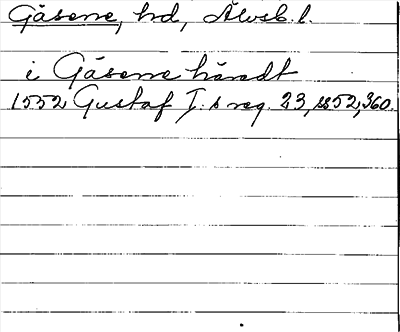 Gäsene, hd, Älvsb. l.
i Gäsene häradt
1552 Gustaf I:s reg. 23, ss 52, 360.